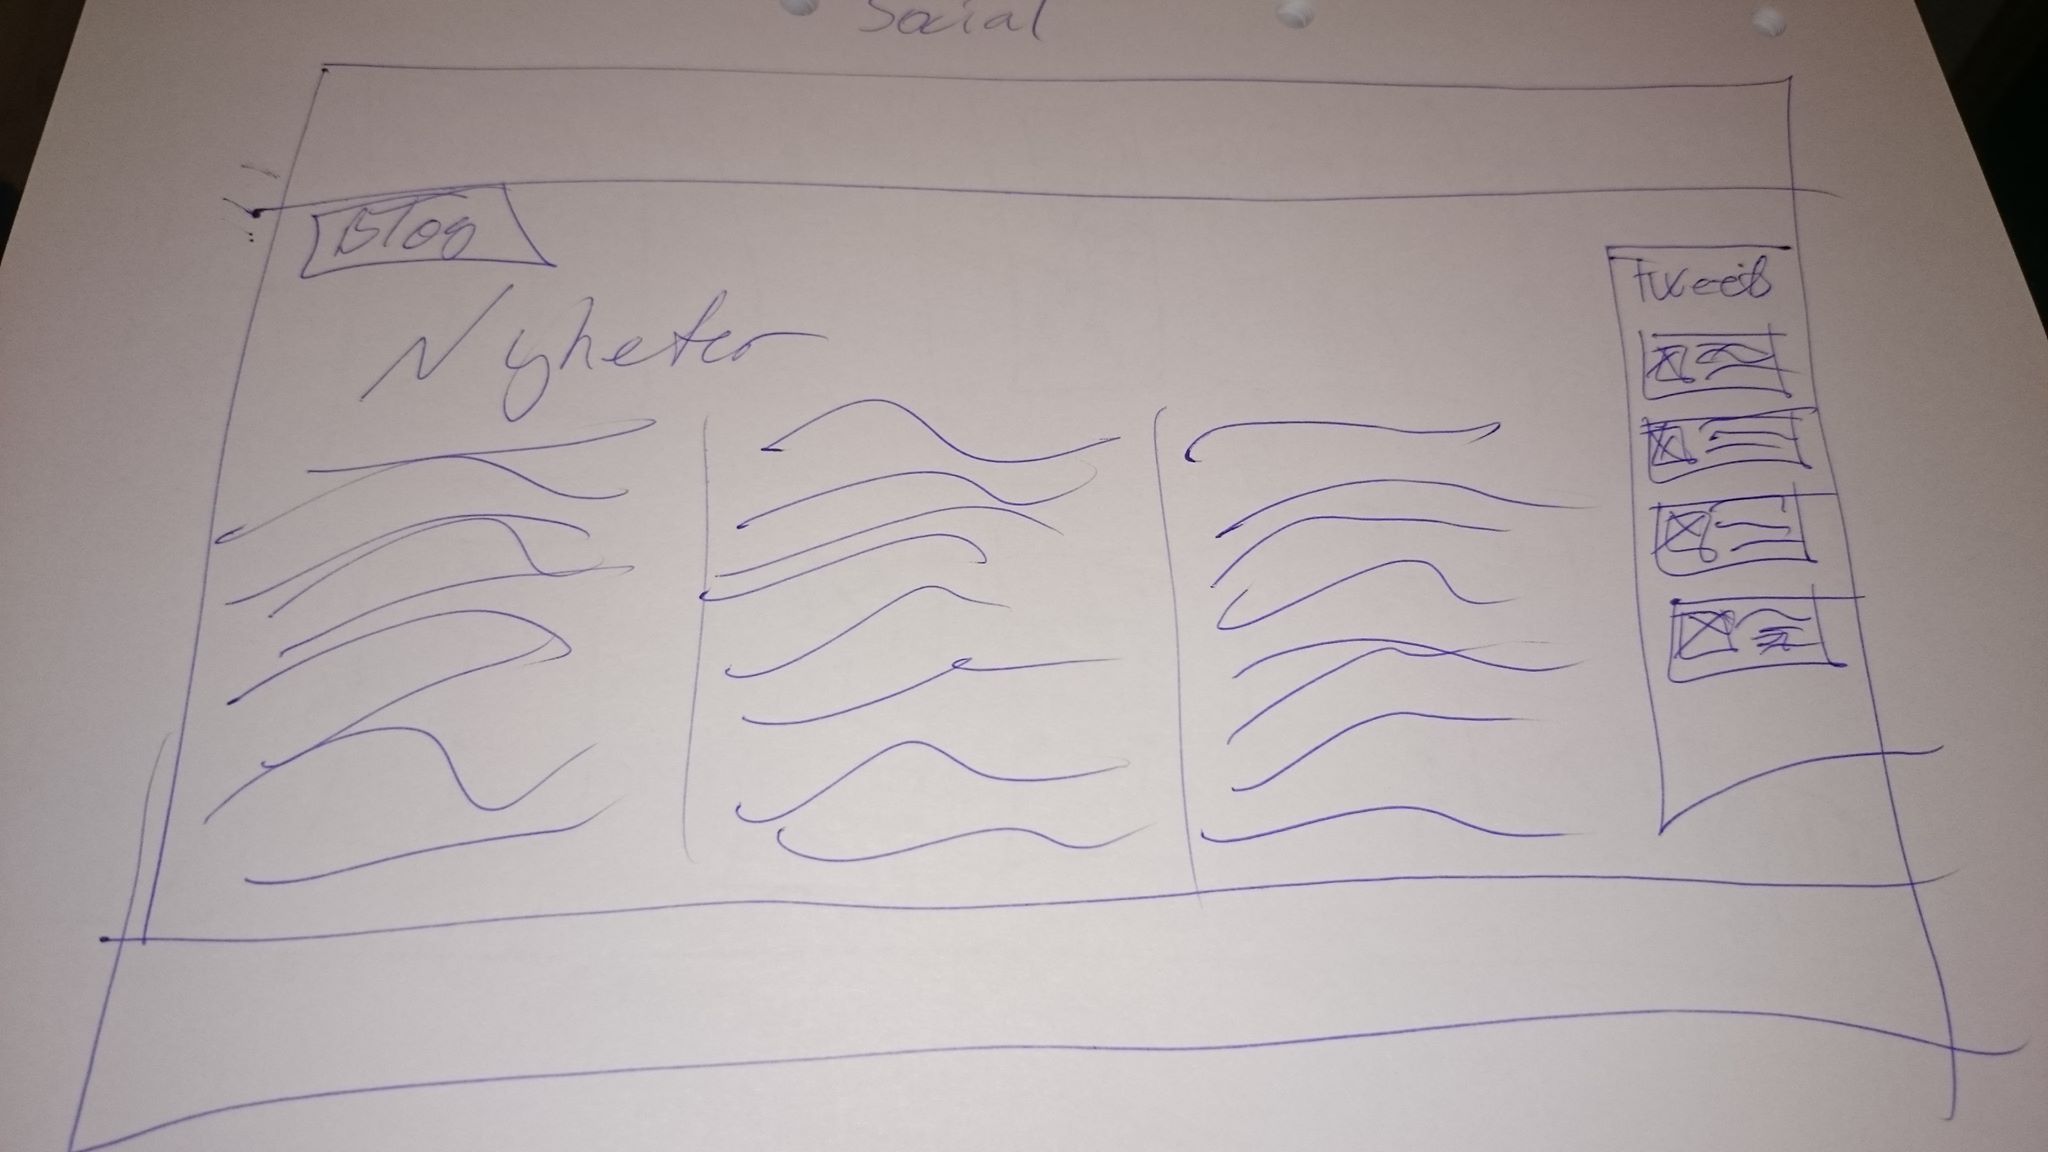 Social
Blog
Nyheter
tweets